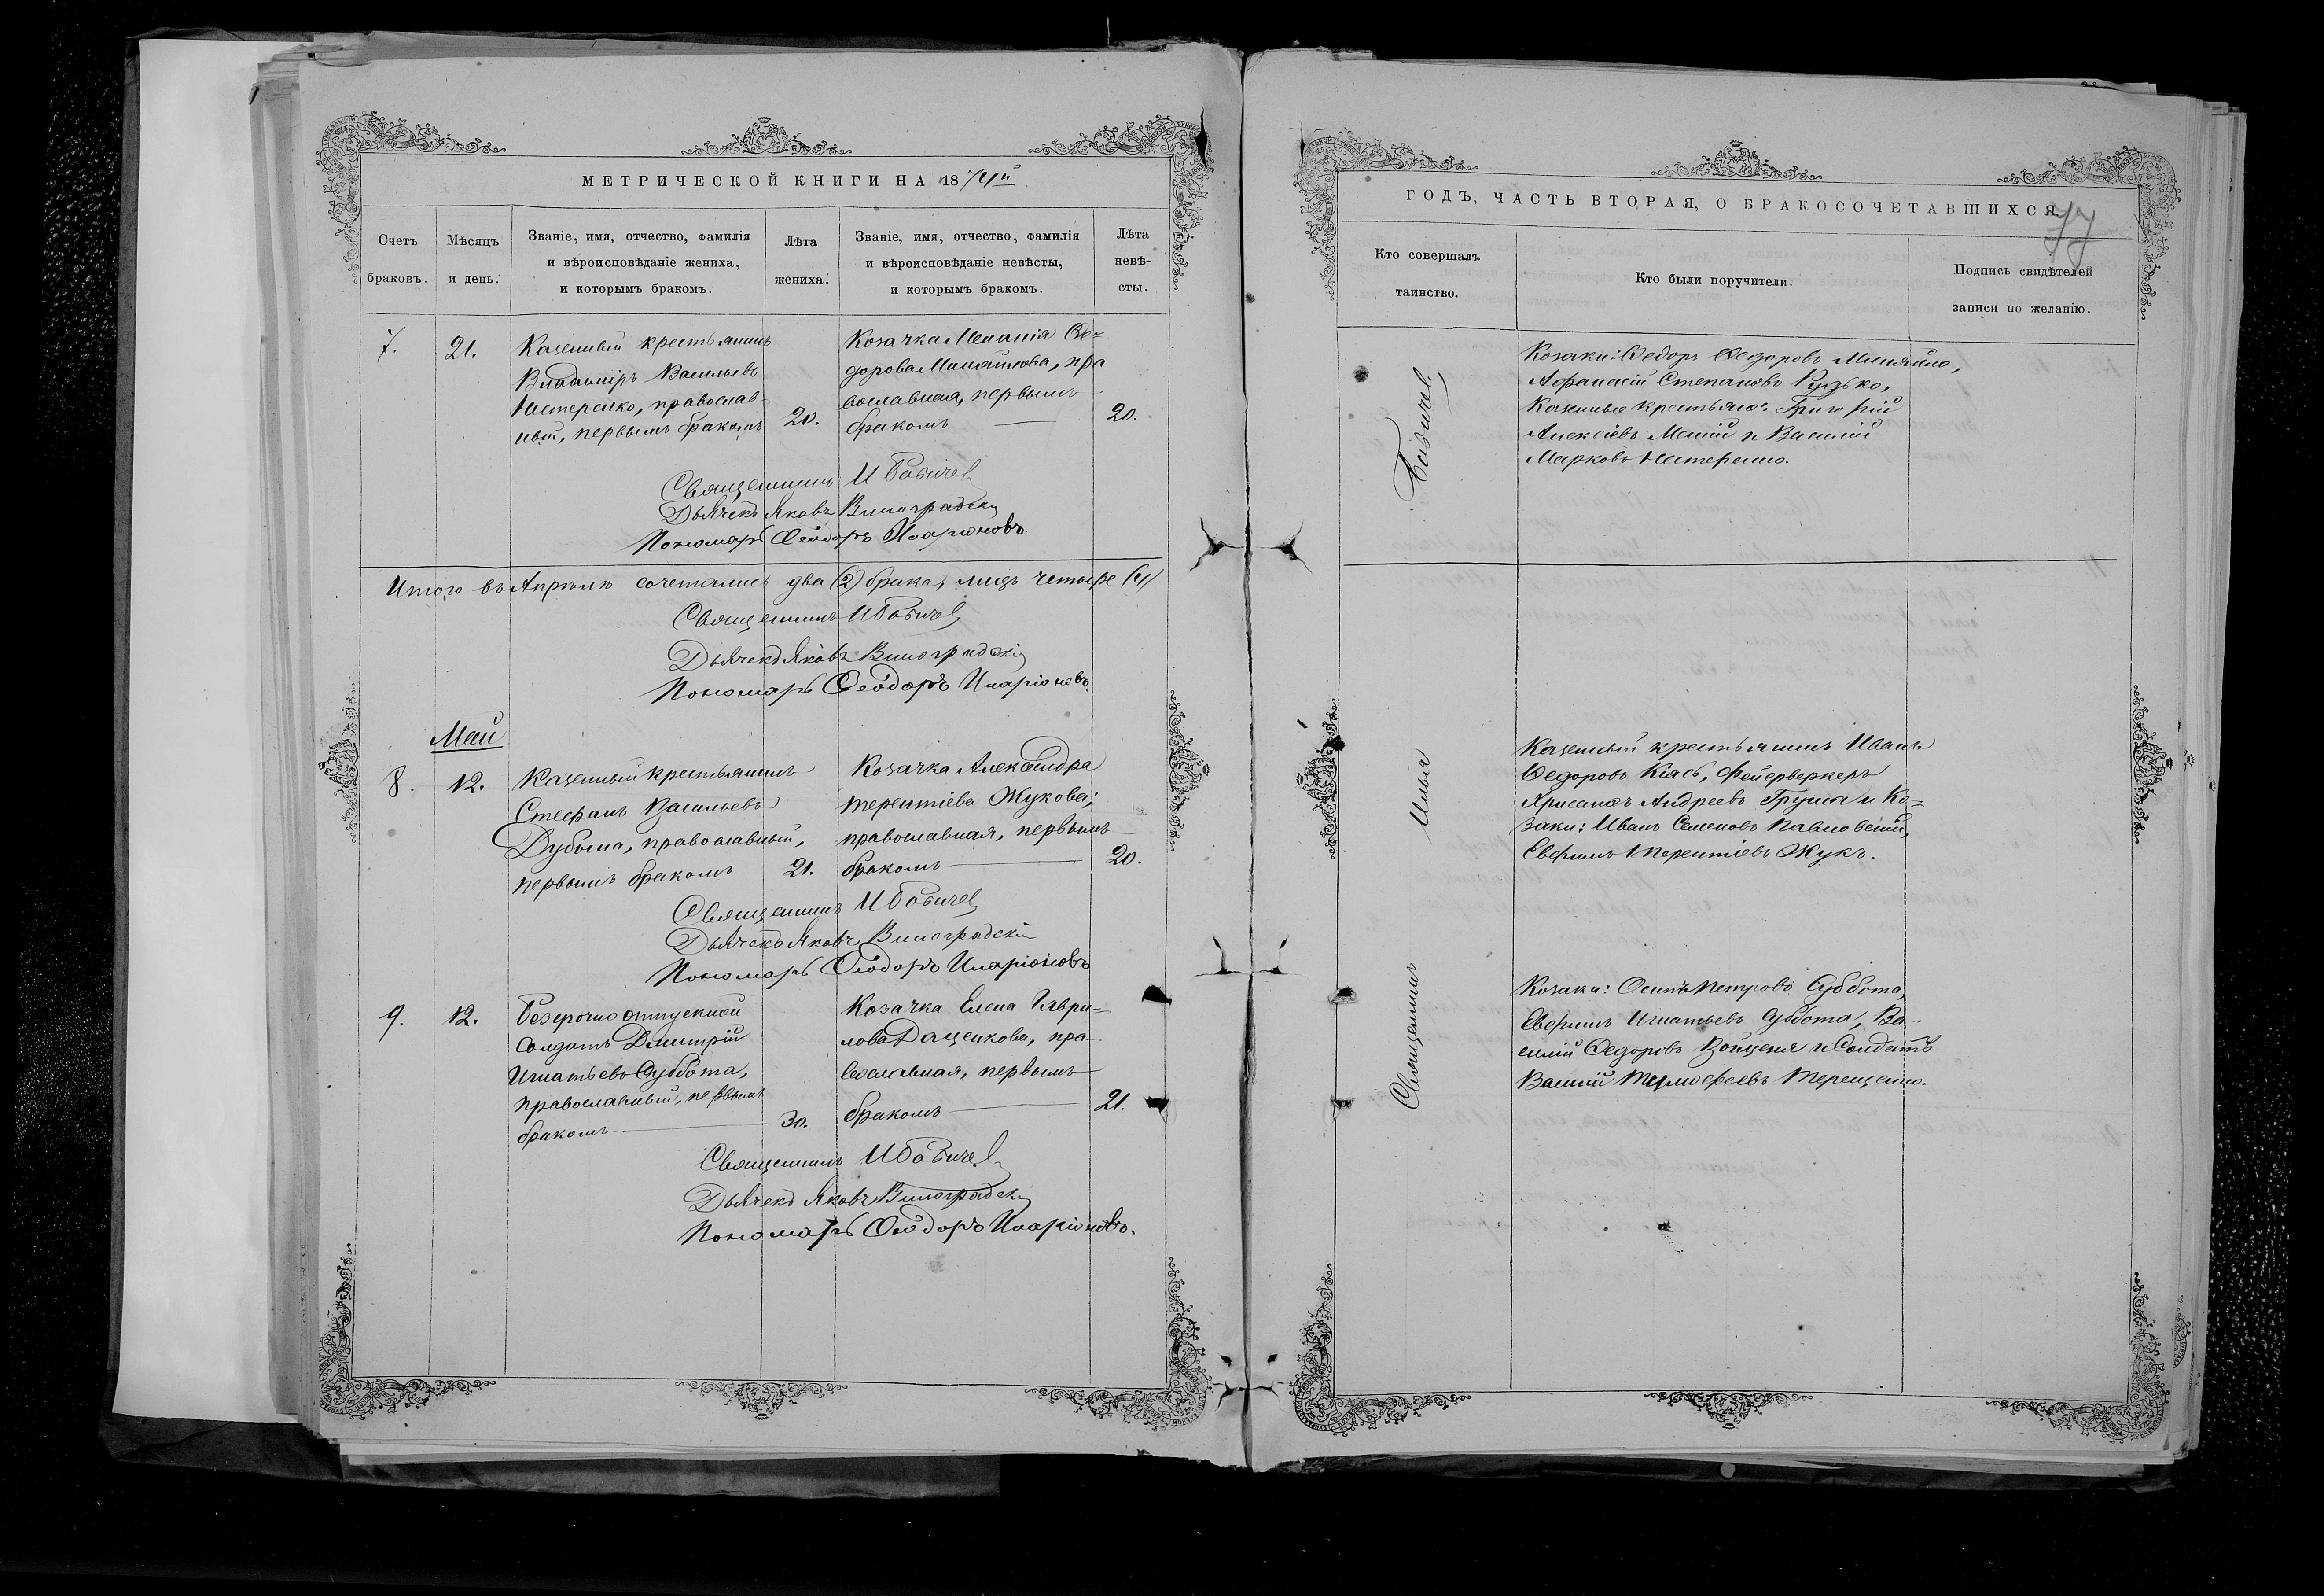 МЕТРИЧЕСКОЙ КНИГИ НА 1874й
Счетъ браковъ.
Мѣсяцъ и день.
Званіе, имя, отчество, фамилія и вѣроисповѣданіе жениха, и которымъ бракомъ.
Лѣта жениха.
Званіе, имя, отчество, фамилія и вѣроисповѣданіе невѣсты, и которымъ бракомъ.
Лѣта невѣ-
сты.
7.
21.
Казенный крестьянинъ
Владиміръ Васильевъ
Нестеренко, православ-
ный, первымъ бракомъ
20.
Козачка Меланія Ѳе-
дорова Миняйлова, пра
вославная, первымъ
бракомъ
20.
Священникъ И Бабичев
Дьячекъ Яковъ Виноградскій
Пономарь Ѳеодоръ Иларіоновъ.
Итого въ Апрѣлѣ сочетались два (2) брака, лицъ четыре (4)
Священникъ И Бабичев
Дьячекъ Яковъ Виноградскій
Пономарь Ѳеодоръ Иларіоновъ.
Май
8.
12.
Казенный крестьянинъ
Стефанъ Васильевъ
Дубына, православный,
первымъ бракомъ
21.
Козачка Александра
Терентіева Жукова;
православная, первымъ
бракомъ
20.
Священникъ И Бабичев
Дьячекъ Яковъ Виноградскій
Пономарь Ѳеодоръ Иларіоновъ
9.
12.
Безсрочно отпускной
Солдатъ Димитрій
Игнатьевъ Суббота,
православный, первымъ
бракомъ
30.
Козачка Елена Гаври-
лова Даценкова, пра-
вославная, первымъ
бракомъ
21.
Священникъ И Бабичев
Дьячекъ Яковъ Виноградскій
Пономарь Ѳеодоръ Иларіоновъ.
ГОДЪ, ЧАСТЬ ВТОРАЯ, О БРАКОСОЧЕТАВШИХСЯ.
Кто совершалъ таинство.
Кто были поручители.
Подпись свидѣтелей записи по желанію.
Священникъ Илья Бабичев
Козаки: Ѳедоръ Ѳедоровъ Миняйло,
Аѳанасій Степановъ
Казенные крестьяне: Григорій
Алексіевъ и Василій
Марковъ Нестеренко.
Казенный крестьянинъ Иванъ
Ѳедоровъ фейерверкеръ
Андреевъ и Ко-
заки: Иванъ Семеновъ Павловскій,
Евфимъ Терентіевъ Жукъ.
Козаки: Осипъ Петровъ Суббота,
Евфимъ Игнатьевъ Суббота, Ва-
силій Ѳедоровъ и Солдатъ
Василій Тимофеевъ Терещенко.